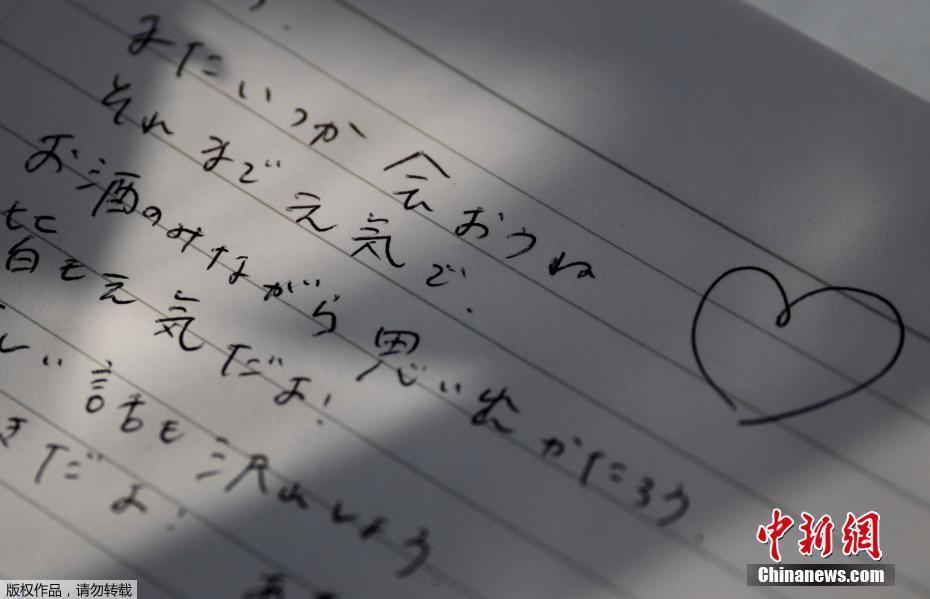 またいつか会おうね
それまで元気で.
お酒のみながら思い出かたろう
皆も元気だよ!
しい話も沢山しよう
きだよ
中新网
Chinanews.com
版权作品，请勿转载